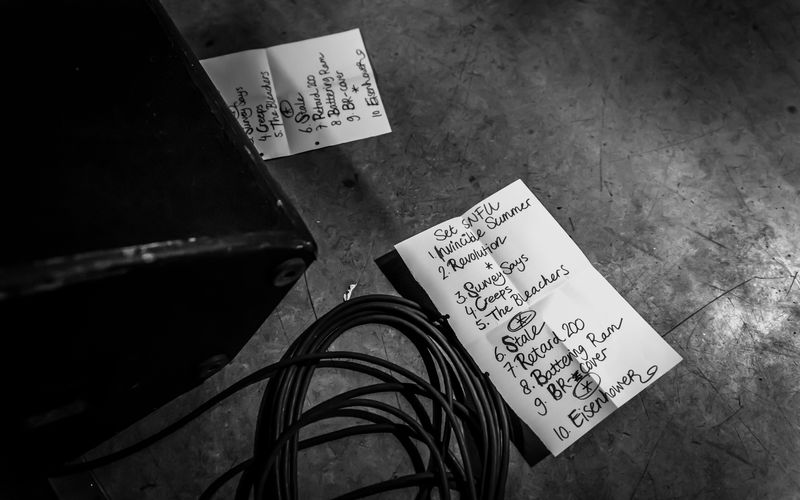 Survey Says
4 Creeps
5. The Bleachers
*
6. Stale
7 Retard 200
8 Battering Ram
9. BR-cover
*
10 Eisenhower
Set SNFU
1. Invincible Summer
2. Revolution
*
3. Survey Says
4. Creeps
5. The Bleachers
*
6. Stale
7. Retard 200
8. Battering Ram
9. BR-cover
*
10. Eisenhower